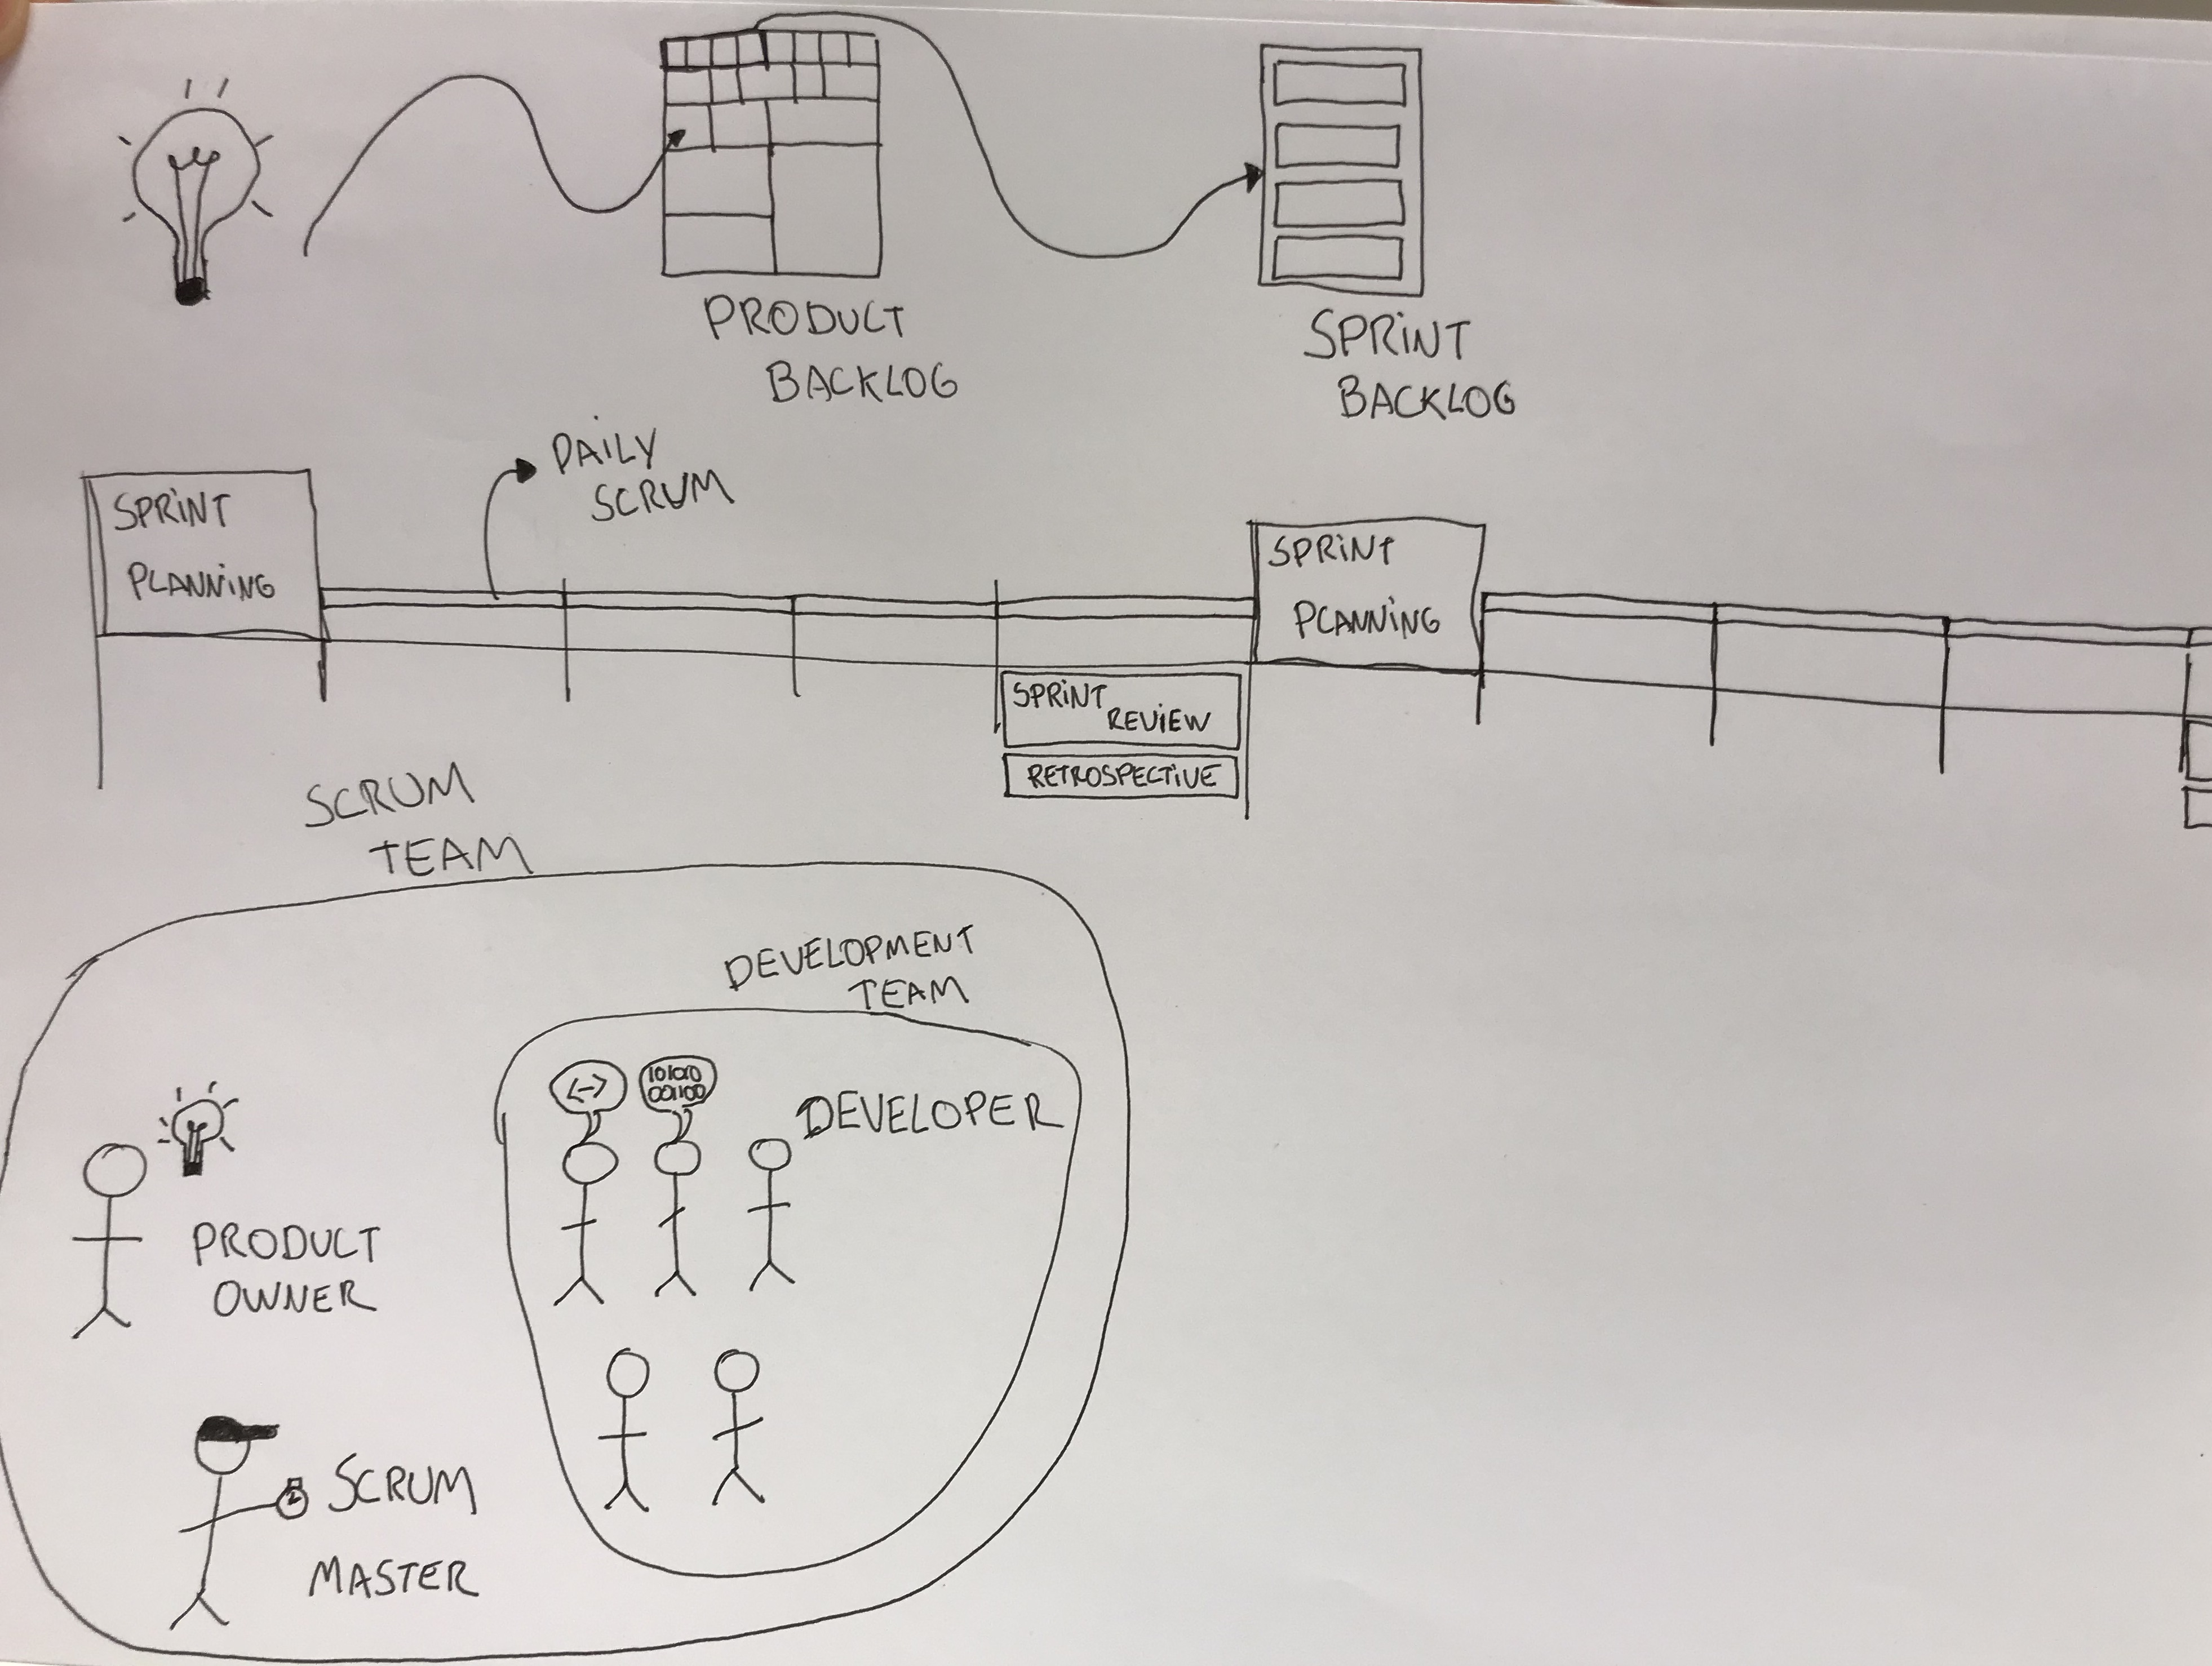 PRODUCT
BACKLOG
SPRiNT
BACKLOG
DAiLY
SCRUM
SPRiNT
PLANNiNG
SPRiNT
PLANNiNG
SPRiNT
REViEW
RETROSPECTiVE
SCRUM
TEAM
DEVELOPMENT
TEAM
<->
101010
001100
DEVELOPER
PRODUCT
OWNER
SCRUM
MASTER